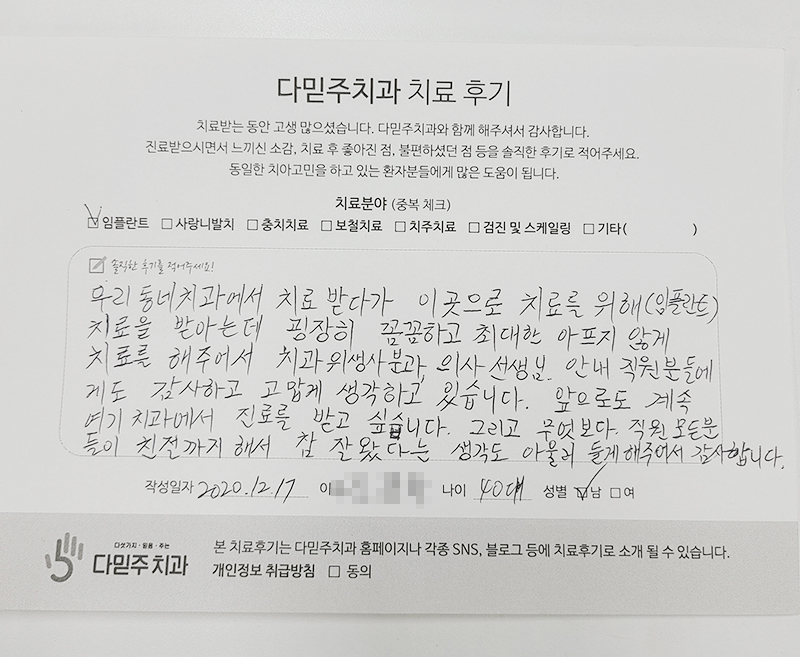 다믿주치과 치료 후기
치료받는 동안 고생 많으셨습니다. 다믿주치과와 함께 해주셔서 감사합니다.
진료받으시면서 느끼신 소감, 치료 후 좋아진 점, 불편하셨던 점 등을 솔직한 후기로 적어주세요.
동일한 치아고민을 하고 있는 환자분들에게 많은 도움이 됩니다.
치료분야 (중복 체크)
☑임플란트 □사랑니발치 □충치치료 □보철치료 □치주치료 □검진 및 스케일링 □기타( )
솔직한 후기를 적어주세요!
우리 동네치과에서 치료 받다가 이곳으로 치료를 위해(임플란트)
치료을 받아는데 굉장히 꼼꼼하고 최대한 아프지 않게
치료를 해주어서 치과위생사분과, 의사선생님, 안내 직원분들에
게도 감사하고 고맙게 생각하고 있습니다. 앞으로도 계속
여기 치과에서 진료를 받고 싶습니다. 그리고 무엇보다 직원 모든분
들이 친절까지 해서 참 잘왔다는 생각도 아울러 들게해주어서 감사합니다.
작성일자 2020.12.17 이 나이 40대 성별 ☑남 □여
다섯가지·믿음·주는
다믿주치과
본 치료후기는 다믿주치과 홈페이지나 각종 SNS, 블로그 등에 치료후기로 소개 될 수 있습니다.
개인정보 취급방침 □ 동의